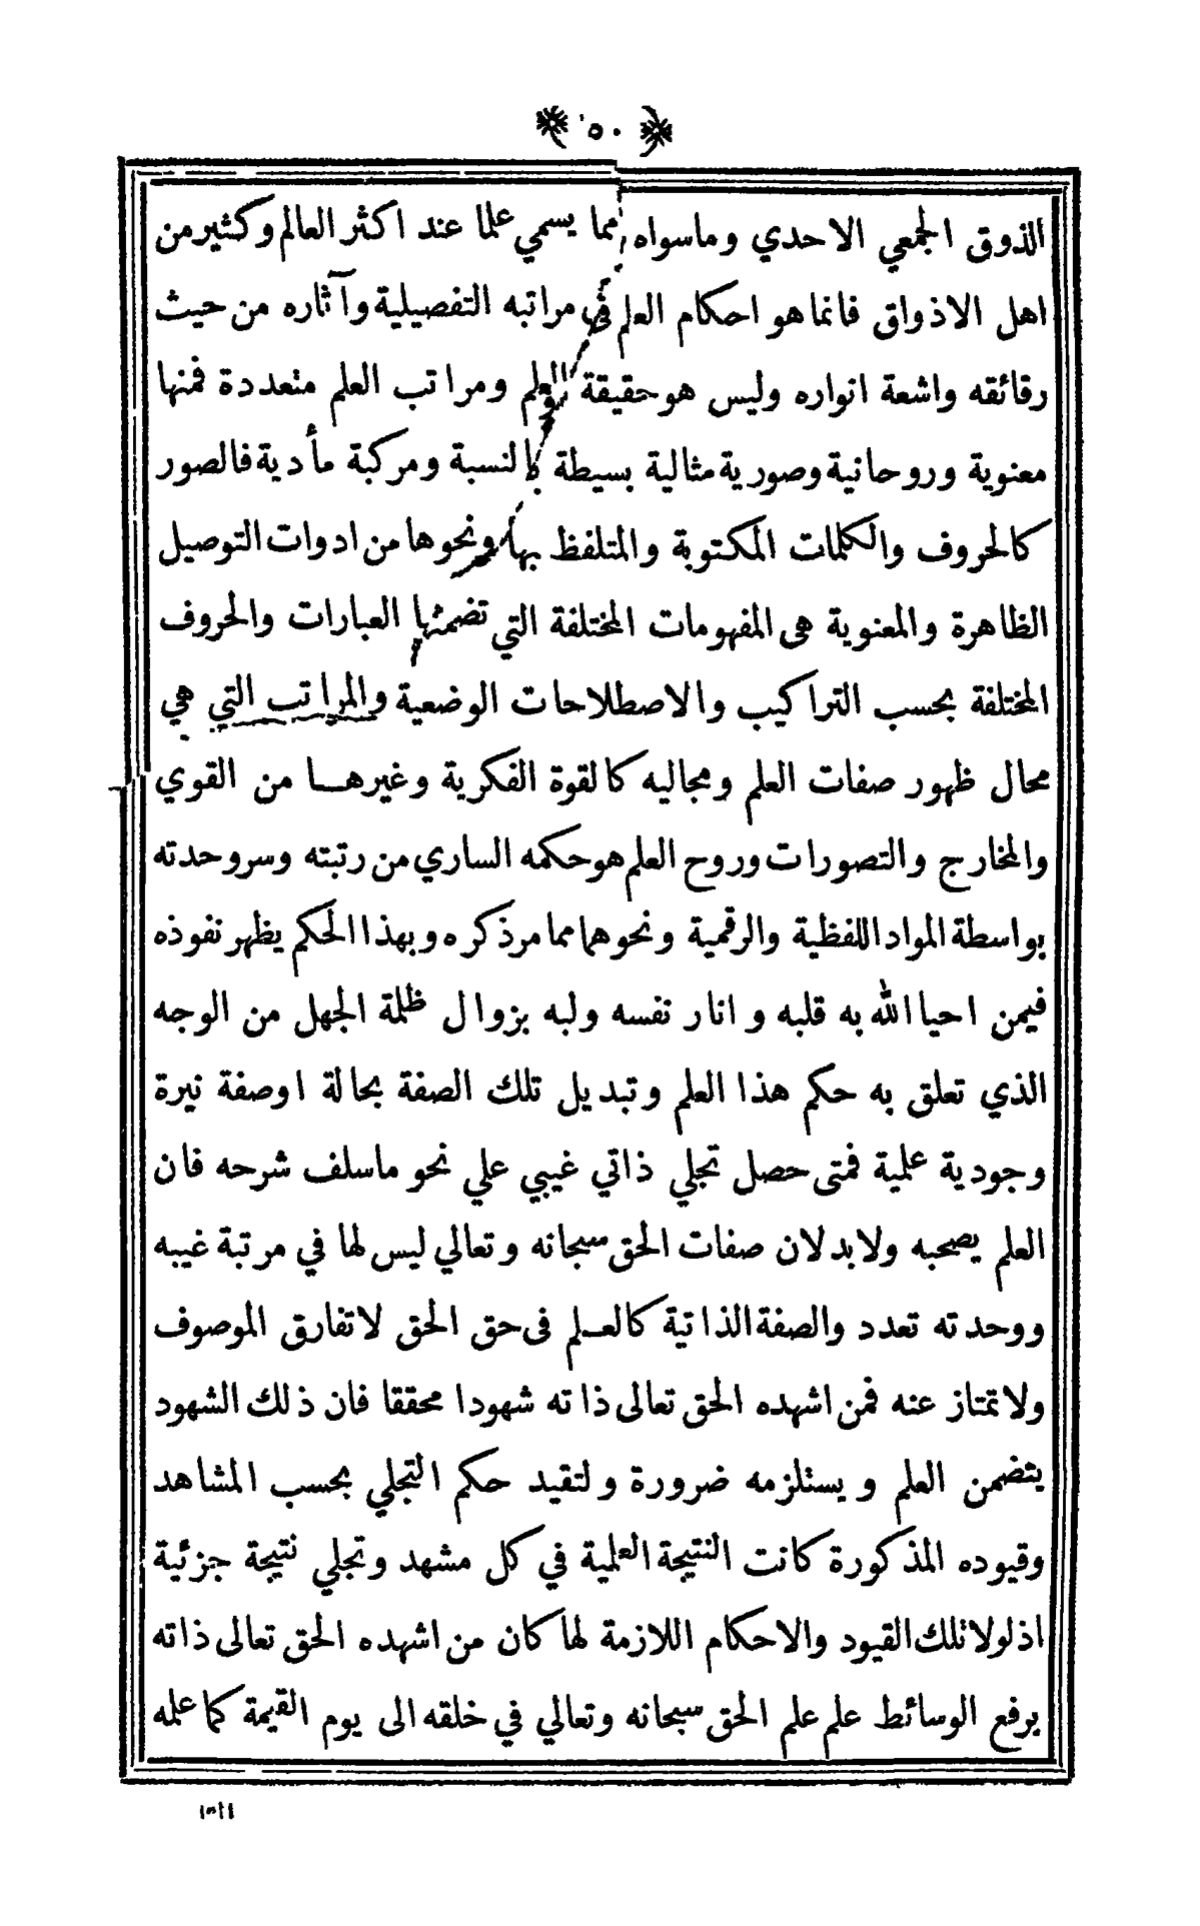 ٥٠
الذوق الجمعي الاحدي وماسواه مما يسمي علما عند اكثر العالم وكثير من
اهل الاذواق فانما هو احكام العلم في مراتبه التفصيلية وآثاره من حيث
رقائقه واشعة انواره وليس هو حقيقة العلم ومراتب العلم متعددة فمنها
معنوية وروحانية وصورية مثالية بسيطة بالنسبة ومركبة مأدية فالصور
كالحروف والكلمات المكتوبة والمتلفظ بها ونحوها من ادوات التوصيل
الظاهرة والمعنوية هى المفهومات المختلفة التي تضمنها العبارات والحروف
المختلفة بحسب التراكيب والاصطلاحات الوضعية والمراتب التي هي
محال ظهور صفات العلم ومجاليه كالقوة الفكرية وغيرهـا من القوي
والمخارج والتصورات وروح العلم هو حكمه الساري من رتبته وسروحدته
بواسطة المواد اللفظية والرقمية ونحوهما مما مر ذكره وبهذا الحكم يظهر نفوذه
فيمن احيا الله به قلبه و انار نفسه ولبه بزوال ظلمة الجهل من الوجه
الذي تعلق به حكم هذا العلم وتبديل تلك الصفة بحالة اوصفة نيرة
وجودية علمية فمتى حصل تجلي ذاتي غيبي علي نحو ماسلف شرحه فان
العلم يصحبه ولابد لان صفات الحق سبحانه وتعالي ليس لها في مرتبة غيبه
ووحدته تعدد والصفة الذاتية كالعـلم فى حق الحق لاتفارق الموصوف
ولاتمتاز عنه فمن اشهده الحق تعالى ذاته شهودا محققا فان ذلك الشهود
يتضمن العلم ويستلزمه ضرورة ولتقيد حكم التجلي بحسب المشاهد
وقيوده المذكورة كانت النتيجة العلمية في كل مشهد وتجلي نتيجة جزئية
اذلولا تلك القيود والاحكام اللازمة لها كان من اشهده الحق تعالى ذاته
برفع الوسائط علم علم الحق سبحانه وتعالي في خلقه الى يوم القيمة كما علمه